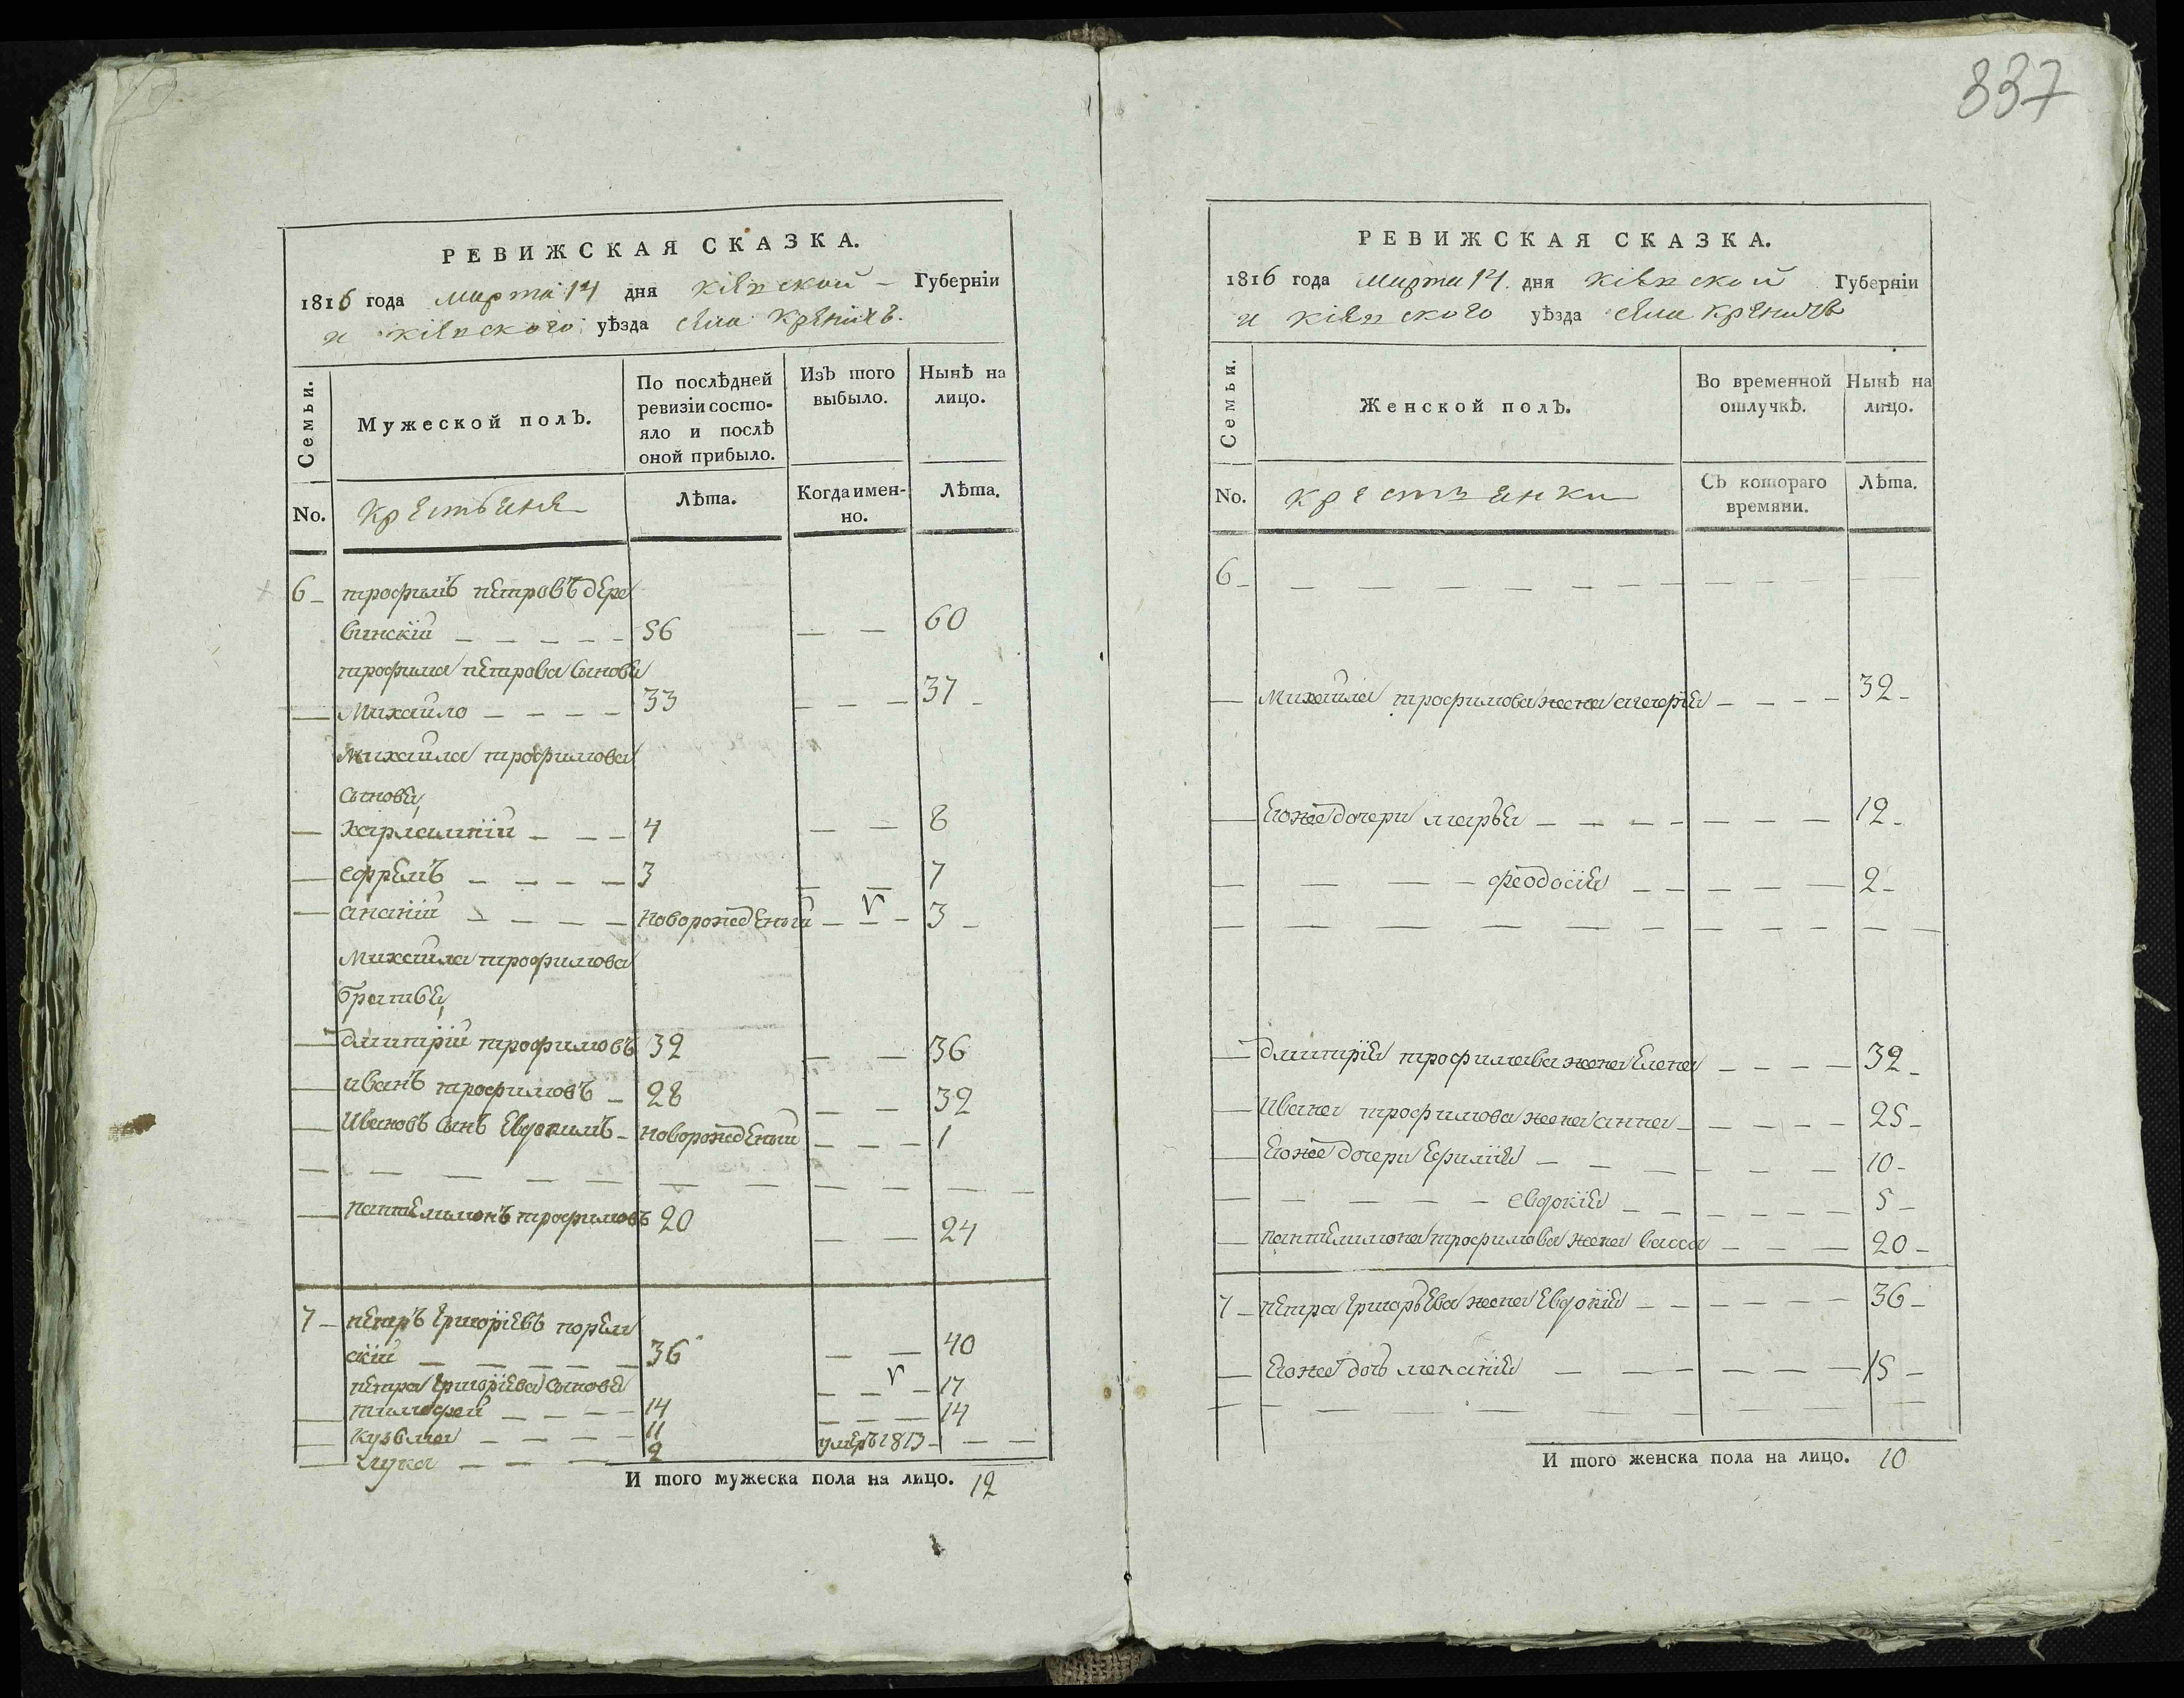 337
РЕВИЖСКАЯ СКАЗКА.
1816 года марта 14 дня кіевской Губерніи
и кіевского уѣзда села Креничъ.
Семьи.
Мужеской полЪ.
По послѣдней ревизіи состояло и послѣ оной прибыло.
ИзЪ того выбыло.
Нынѣ на лицо.
No.
крестьяня
Лѣта.
Когда именно.
Лѣта.
6 трофимъ петровъ дере
винскій 56 60
трофима петрова сыновя
Михайло 33 37
Михайла трофимова
сыновя
харлампій 4 8
ефремъ 3 7
ананій новорожденый 3
Михайла трофимова
братья
дмитрій трофимовъ 32 36
иванъ трофимовъ 28 32
Ивановъ сынъ Евдокимъ новорожденый 1
пантелимонъ трофимовъ 20 24
7 петръ григоріевъ
скій 36 40
петра григоріева сыновя 17
тимофей 14 14
кузьма 11 умеръ 1813
лука 2
И того мужеска пола на лицо. 12
РЕВИЖСКАЯ СКАЗКА.
1816 года марта 14 дня кіевской Губерніи
и кіевского уѣзда села Креничъ
Семьи.
Женской полЪ.
Во временной отлучкѣ.
Нынѣ на лицо.
No.
крестьянки
СЬ котораго времяни.
Лѣта.
6
Михайла трофимова жена агафія 32
Егоже дочери марья 12
феодосія 2
дмитрія трофимова жена Елена 32
Ивана трофимова жена анна 25
Егоже дочери Ефимія 10
евдокія 5
пантелимона трофимова жена васса 20
7 петра григорьева жена Евдокія 36
Егоже дочь меланія 15
И того женска пола на лицо. 10